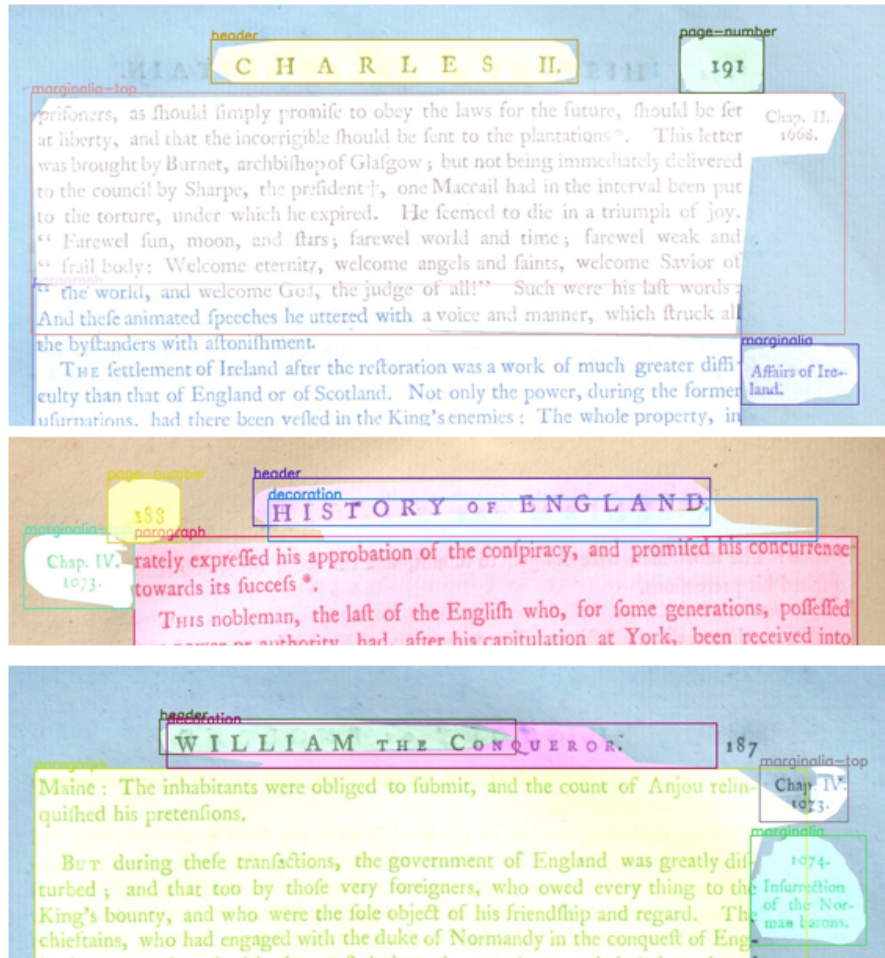 header
CHARLES II.
page-number
191
marginalia-top
priſoners, as ſhould ſimply promiſe to obey the laws for the future, ſhould be ſet
at liberty, and that the incorrigible ſhould be ſent to the plantations *. This letter
was brought by Burnet, archbiſhop of Glaſgow; but not being immediately delivered
to the council by Sharpe, the preſident †, one Maccail had in the interval been put
to the torture, under which he expired. He ſeemed to die in a triumph of joy.
“ Farewel ſun, moon, and ſtars; farewel world and time; farewel weak and
“ frail body: Welcome eternity, welcome angels and ſaints, welcome Savior of
paragraph
“ the world, and welcome God, the judge of all!” Such were his laſt words:
And theſe animated ſpeeches he uttered with a voice and manner, which ſtruck all
the byſtanders with aſtoniſhment.
THE ſettlement of Ireland after the reſtoration was a work of much greater diffi-
culty than that of England or of Scotland. Not only the power, during the former
uſurpations, had there been veſted in the King's enemies: The whole property, in
Chap. II.
1668.
marginalia
Affairs of Ire-
land.
page-number
188
header
decoration
HISTORY OF ENGLAND.
marginalia-top
Chap. IV.
1073.
paragraph
rately expreſſed his approbation of the conſpiracy, and promiſed his concurrence
towards its ſucceſs *.
THIS nobleman, the laſt of the Engliſh who, for ſome generations, poſſeſſed
power or authority, had, after his capitulation at York, been received into
header
decoration
WILLIAM THE CONQUEROR.
187
paragraph
Maine: The inhabitants were obliged to ſubmit, and the count of Anjou relin-
quiſhed his pretenſions.
BUT during theſe tranſactions, the government of England was greatly diſ-
turbed; and that too by thoſe very foreigners, who owed every thing to the
King's bounty, and who were the ſole object of his friendſhip and regard. The
chieftains, who had engaged with the duke of Normandy in the conqueſt of Eng-
marginalia-top
Chap. IV.
1073.
marginalia
1074.
Inſurrection
of the Nor-
man barons.